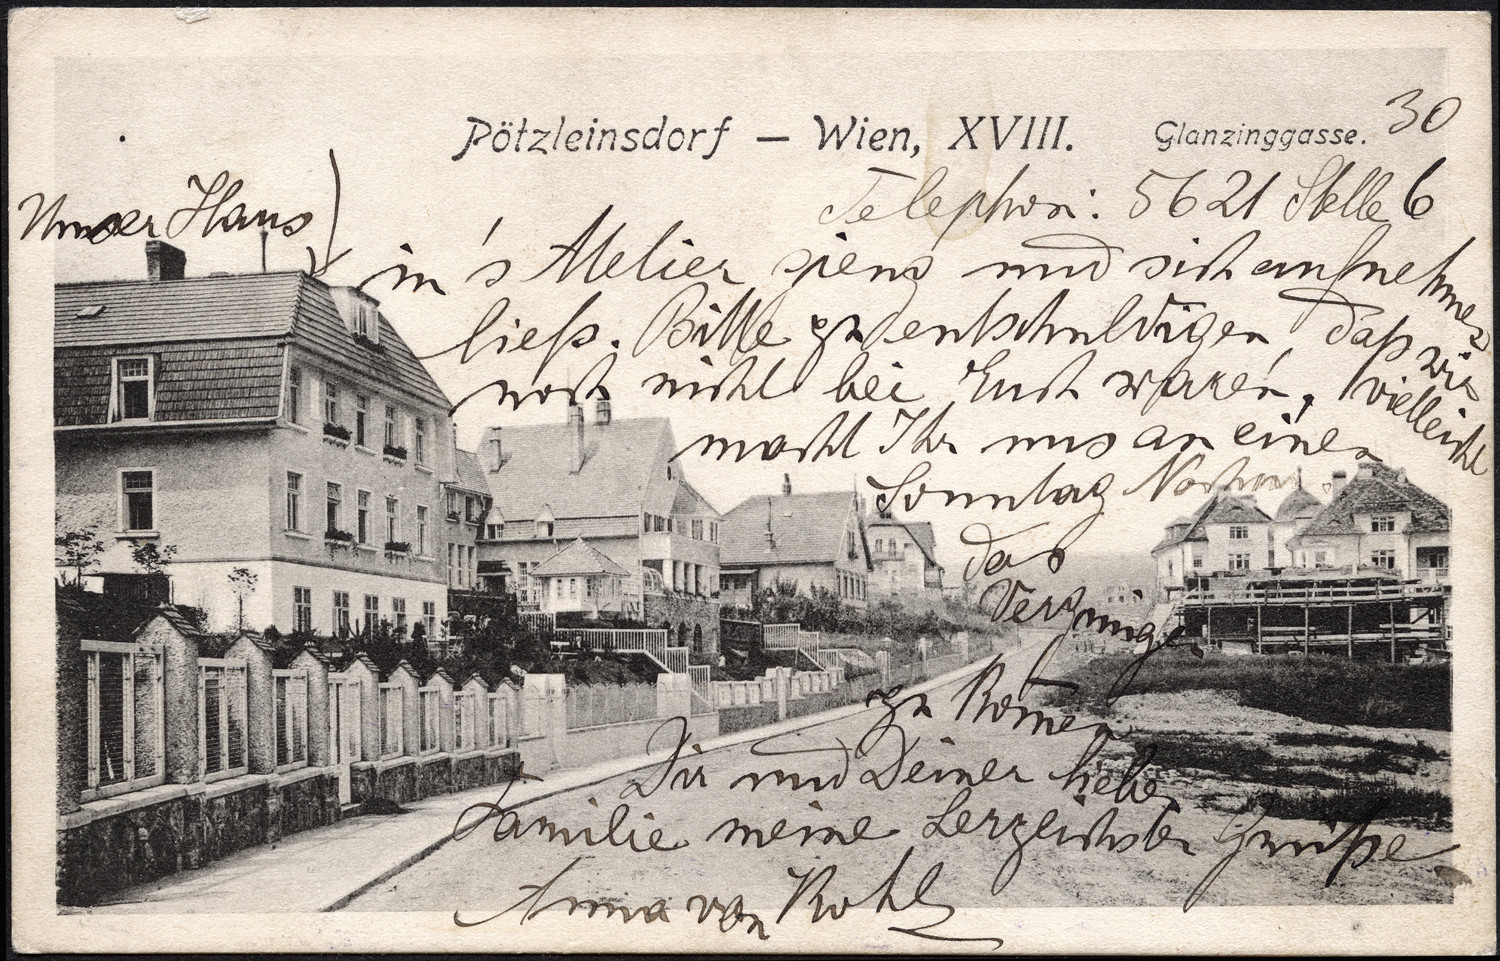 Pötzleinsdorf — Wien, XVIII. Glanzinggasse. 30
Telephon: 5621 Stelle 6
Unser Haus
in's Atelier gieng und sich aufnehmen
ließ. Bitte zu entschuldigen, daß wir
noch nicht bei Euch waren, vielleicht
macht Ihr uns an einen
Sonntag Nachm.
das
Vergnügen
zu kommen
Dir und Deiner lieben
Familie meine herzlichsten Grüße
Anna von